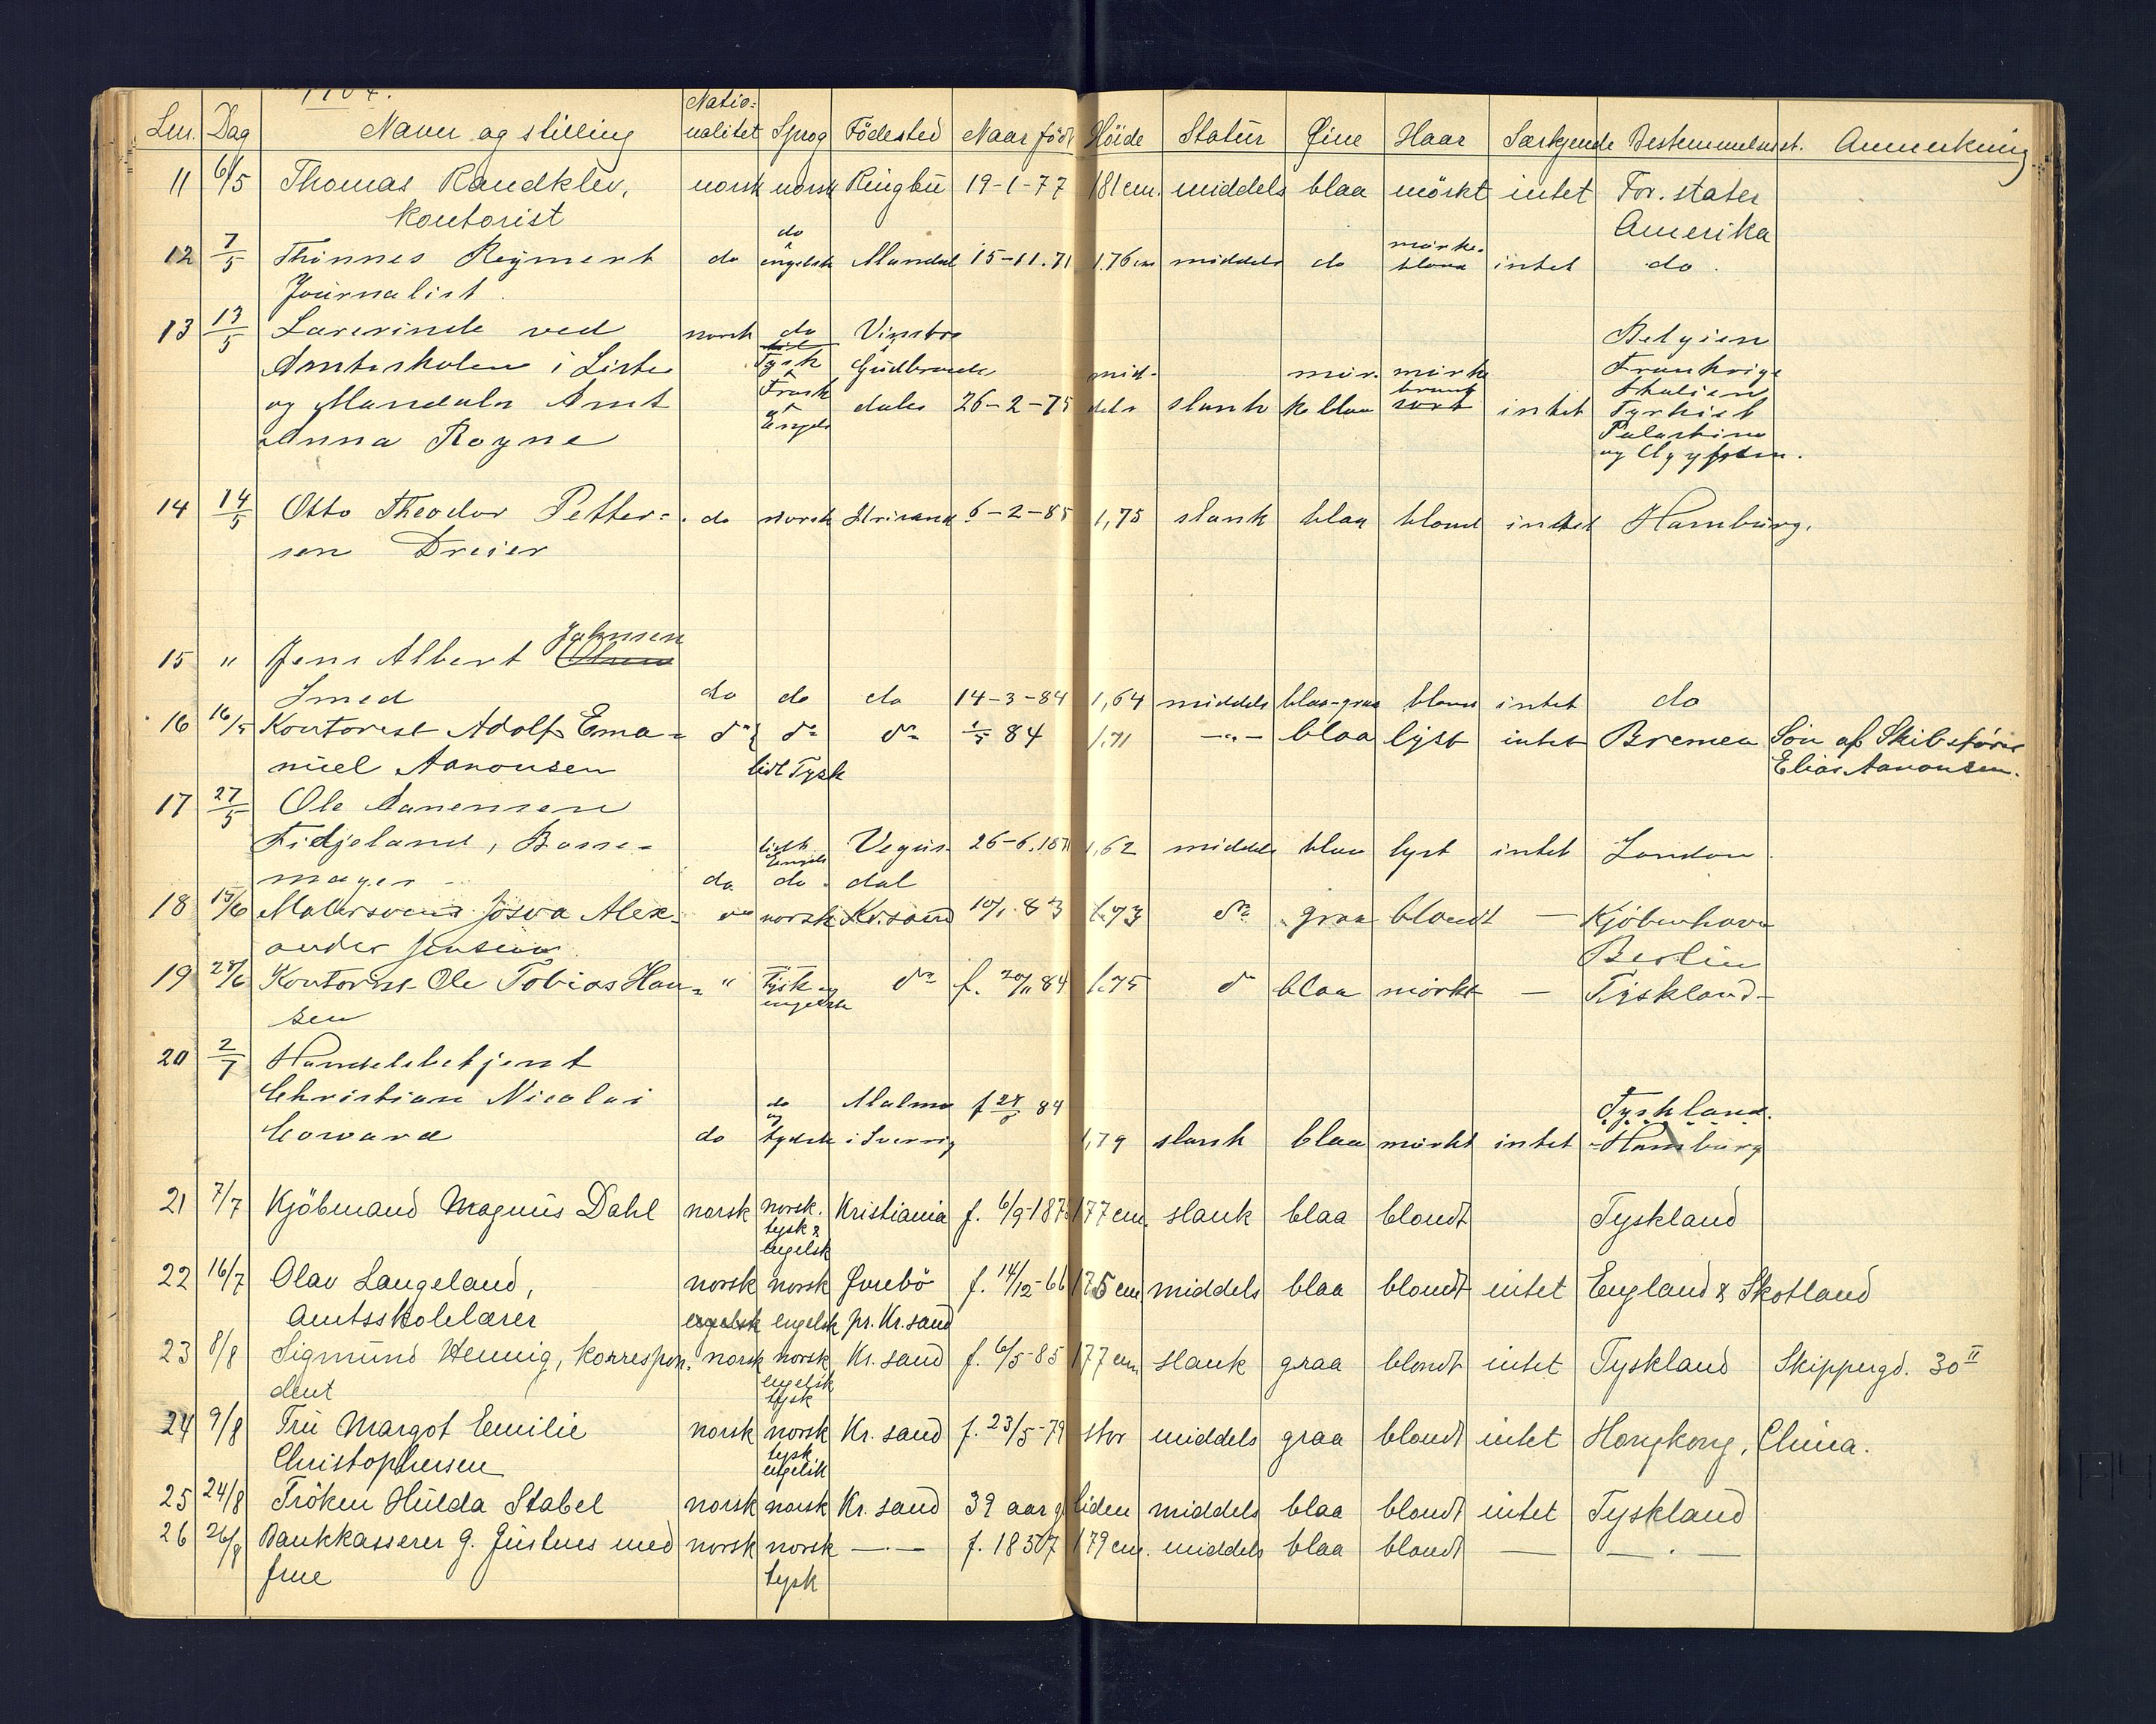 1904.
Lnr. Dag Navn og stilling Natio=nalitet Sprog Födested Naar född Höide Statur Øine Haar Særkjende Bestemmelsesst. Anmerkning
11 6/5 Thomas Randklev, norsk norsk Ringbu 19-1-77 181 cm. middels blaa mörkt intet For. stater
kontorist Amerika
do
12 7/5 Thönnes Reymert do engelsk Mandal 15-11.71 1.76 cm middels do mörke- blond intet do.
Journalist.
13 13/5 Lærerinde ved norsk do Vinstra Belgien
Amtsskolen i Lister Tysk Gudbrands mid- mör- mörke Frankrige
Fransk brunt Italien
og Mandals Amt og dalen 26-2-75 dels slank ke blaa sort intet Tyrkiet
Anna Royne Engels Palæstina
og Ægypten.
14 14/5 Otto Theodor Petter= do norsk Krisand 6-2-85 1,75 slank blaa blond intet Hamburg.
sen Dreier
Johnsen
15 " Jens Albert
Smed do do do 14-3-84 1,64 middels blaa-graa blond intet do
16 16/5 Kontorist Adolf Ema= do do do 1/5 84 1.71 -"- blaa lyst intet Bremen Sön af Skibsförer
nuel Aanonsen lidt Tysk Elias Aanonsen.
17 27/5 Ole Aanensen
Fidjeland, Basse- lidt Vegus- 26-6.187 1,62 middels blaa lyst intet London.
Engels
mager do. do. dal
18 15/6 Malersvend Josva Alex- do norsk Kr.sand 10/1 83 1.73 do graa blondt — Kjöbenhavn
ander Jensen Berlin
19 28/6 Kontorist Ole Tobias Han= " Tysk og do f. 20/11 84 1.75 do blaa mörkt — Tyskland-
sen engelsk
20 2/7 Handelsbetjent
Christian Nicolai do Malmø f 28/8 84 Tyskland.
og
Coward do tydsk i Sverrig 1,79 slank blaa mörkt intet -Hamburg
21 7/7 Kjöbmand Magnus Dahl norsk norsk. Kristiania f. 6/9-187 177 cm. slank blaa blondt Tyskland
tysk &
engelsk
22 16/7 Olav Langeland, norsk norsk Øvrebö f. 14/12-66 175 cm middels blaa blondt intet England & Skotland
Amtsskolelærer engelsk engelsk pr. Kr.sand
23 8/8 Sigmund Hennig, korrespon- norsk norsk Kr. sand f. 6/5-85 177 cm slank graa blondt intet Tyskland Skippergd. 30 II
dent engelsk
tysk
24 9/8 Fru Margot Emilie norsk norsk Kr. sand f. 23/5-79 stor middels graa blondt intet Hongkong, China.
Christophersen tysk
engelsk
25 24/8 Fröken Hulda Stabel norsk norsk Kr. sand 39 aar g liden middels blaa blondt intet Tyskland
26 26/8 Bankkasserer G. Justnes med norsk norsk —.— f. 1857 179 cm. middels blaa blondt — — . —
frue tysk